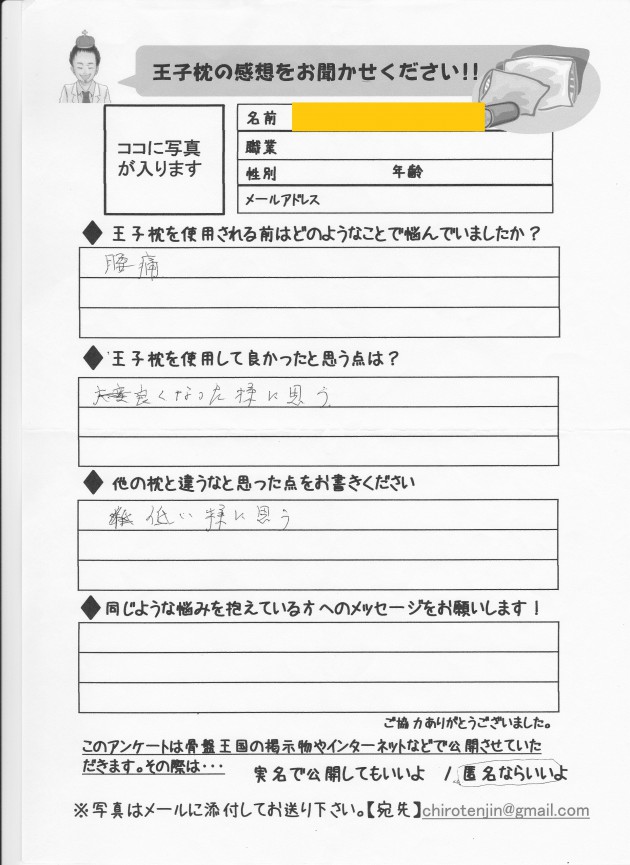 王子枕の感想をお聞かせください!!
ココに写真
が入ります
名前
職業
性別 年齢
メールアドレス
◆王子枕を使用される前はどのようなことで悩んでいましたか？
腰痛
◆王子枕を使用して良かったと思う点は？
良くなった様に思う
◆他の枕と違うなと思った点をお書きください
低い様に思う
◆同じような悩みを抱えている方へのメッセージをお願いします！
ご協力ありがとうございました。
このアンケートは骨盤王国の掲示物やインターネットなどで公開させていた
だきます。その際は・・・ 実名で公開してもいいよ / 匿名ならいいよ
※写真はメールに添付してお送り下さい。【宛先】chirotenjin@gmail.com